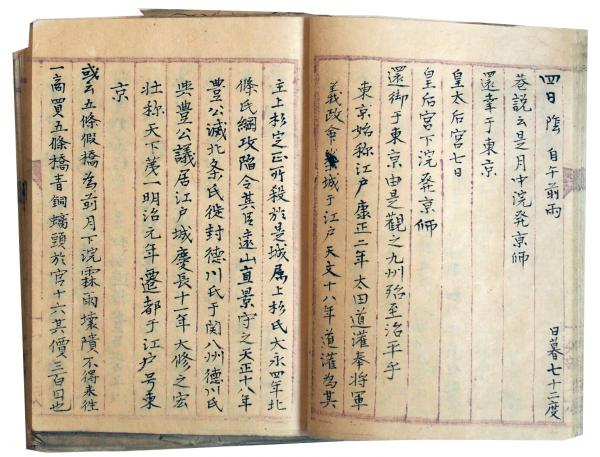 四日陰 自午前雨 日暮七十二度
巷説云是月中浣発京師
還幸于東京
皇太后宮七日
皇后宮下浣発京師
還御于東京由是觀之九州殆至治乎
東京始称江户康正二年太田道灌奉将軍
義政命築城于江户天文十八年道灌為其
主上杉定正所殺於是城属上杉氏大永四年北
條氏綱攻陥令其臣遠山直景守之天正十八年
豊公滅北条氏徙封德川氏于関八州德川氏
與豊公議居江户城慶長十一年大修之宏
壮称天下茂一明治元年遷都于江户号東
京
或云五條假橋為前月下浣霖雨壊隤不得来往
一商買五條橋青銅螭頭於官十六其價三百円也